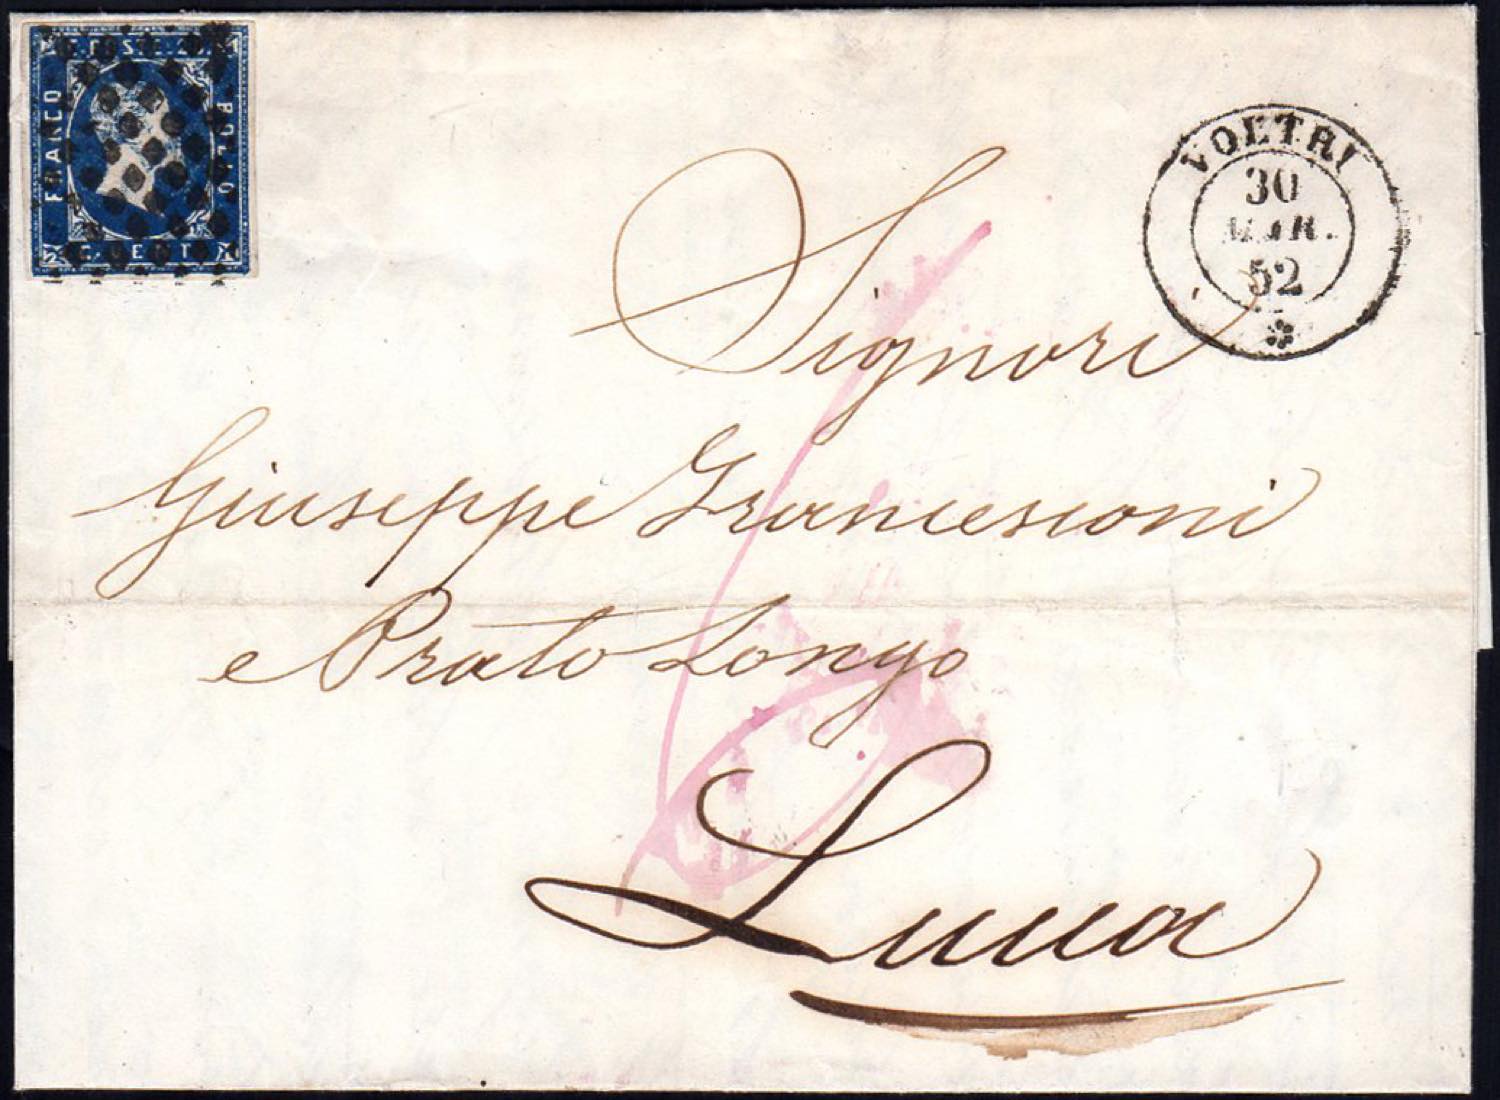 C. POSTE. 20
FRANCO
BOLLO
C. CENT. 20
VOLTRI
30
MAR.
52
Signori
Giuseppe Francesconi
e Prato Longo
Lucca